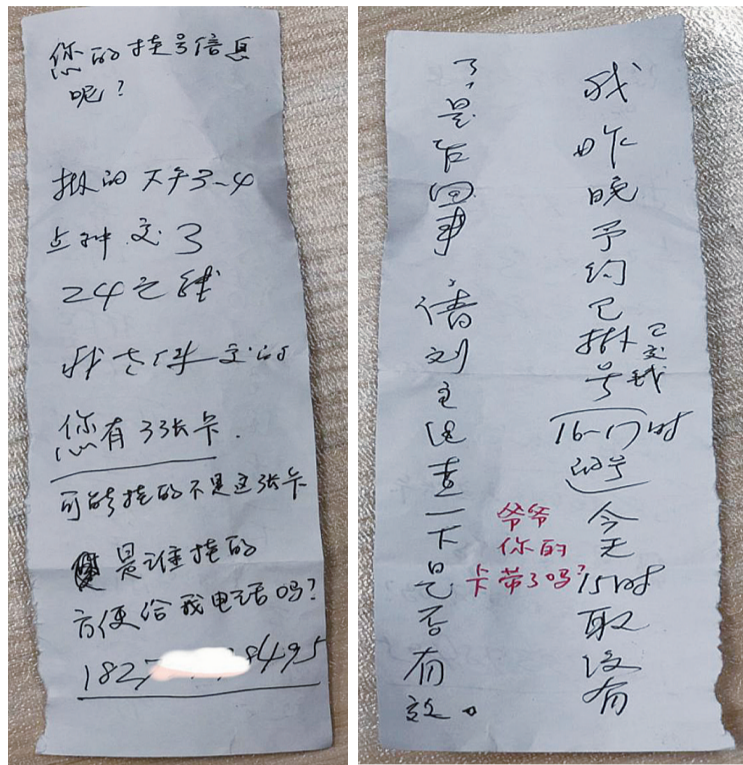 您的挂号信息
呢？
掛的下午3-4
点钟.交了
24元钱
我老伴交的
您有3张卡.
可能挂的不是这张卡
是谁挂的
方便给我电话吗？
182
8495
我昨晚予约已掛号
已交钱
16-17时
号
今天15时取没有
了,是咋回事,请刘主任查一下是否有效。
爷爷
你的
卡带了吗？